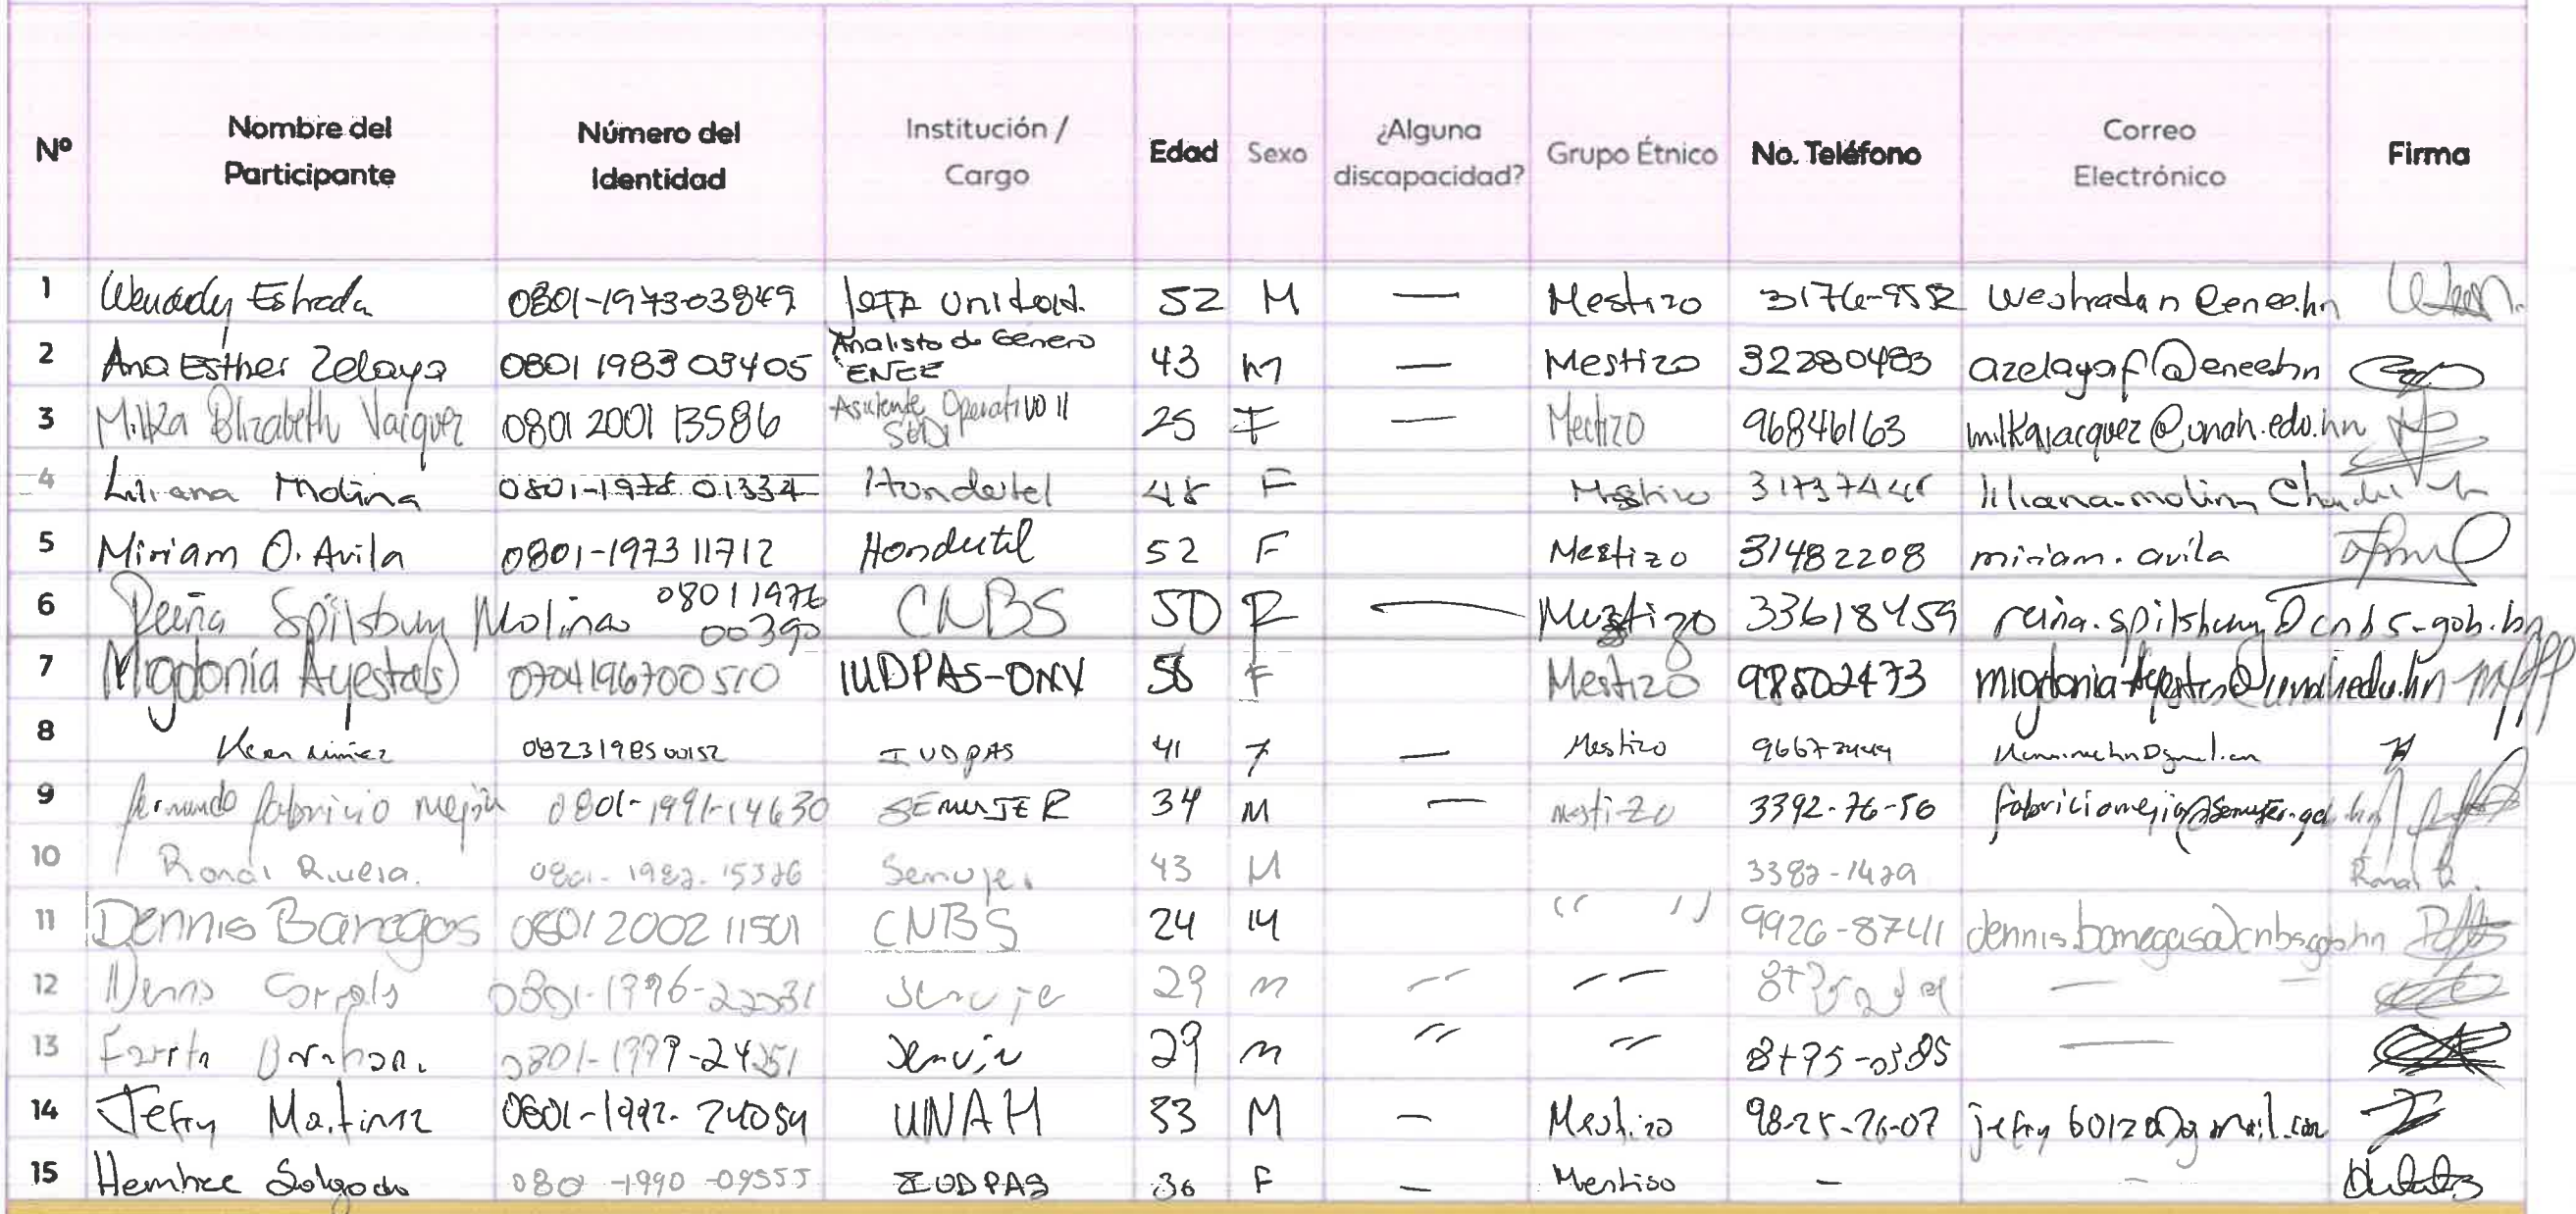 Nº Nombre del Participante Número del Identidad Institución / Cargo Edad Sexo ¿Alguna discapacidad? Grupo Étnico No. Teléfono Correo Electrónico Firma
1 Wendy Estrada 0801-1973-03849 Jefe Unidad. 52 M — Mestizo 3176-9552 westradan@enee.hn
2 Ana Esther Zelaya 0801 1983 03405 Analista de Género ENEE 43 M — Mestizo 32280483 azelayaf@enee.hn
3 Milka Elizabeth Vásquez 0801 2001 13586 Asistente Operativo II SEDI 25 F — Mestizo 96846163 milkavasquez@unah.edu.hn
4 Liliana Molina 0801-1978 01334 Hondutel 48 F Mestizo liliana.molina
5 Miriam O. Avila 0801-1973 11712 Hondutel 52 F Mestizo 31482208 miriam.avila
6 Reina Spilsbury Molina 08011976 00390 CNBS 50 F — Mestizo 33618459 reina.spilsbury@cnbs.gob.hn
7 Migdonia Ayestas 0704196700510 IUDPAS-ONV F Mestizo 98502473 migdonia.ayestas@unah.edu.hn
8 IUDPAS 41 F — Mestizo
9 Fernando Fabricio Mejía 0801-1991-14630 SEMUJER 34 M — Mestizo 3392-76-56 fabriciomejia@semujer.gob.hn
10 Ronal Rivera. 0801-1982-15326 Semujer 43 M 3382-1429 Ronal R.
11 Dennis Banegas 0801 2002 11501 CNBS 24 M " " 9926-8741 dennis.banegas@cnbs.gob.hn
12 Semuje 29 m " " —
13 29 m " " —
14 Jefry Martinez 0801-1992-24054 UNAH 33 M — Mestizo 98-25-26-07 jefry6012@gmail.com
15 Salgado IUDPAS 36 F — Mestiso — —